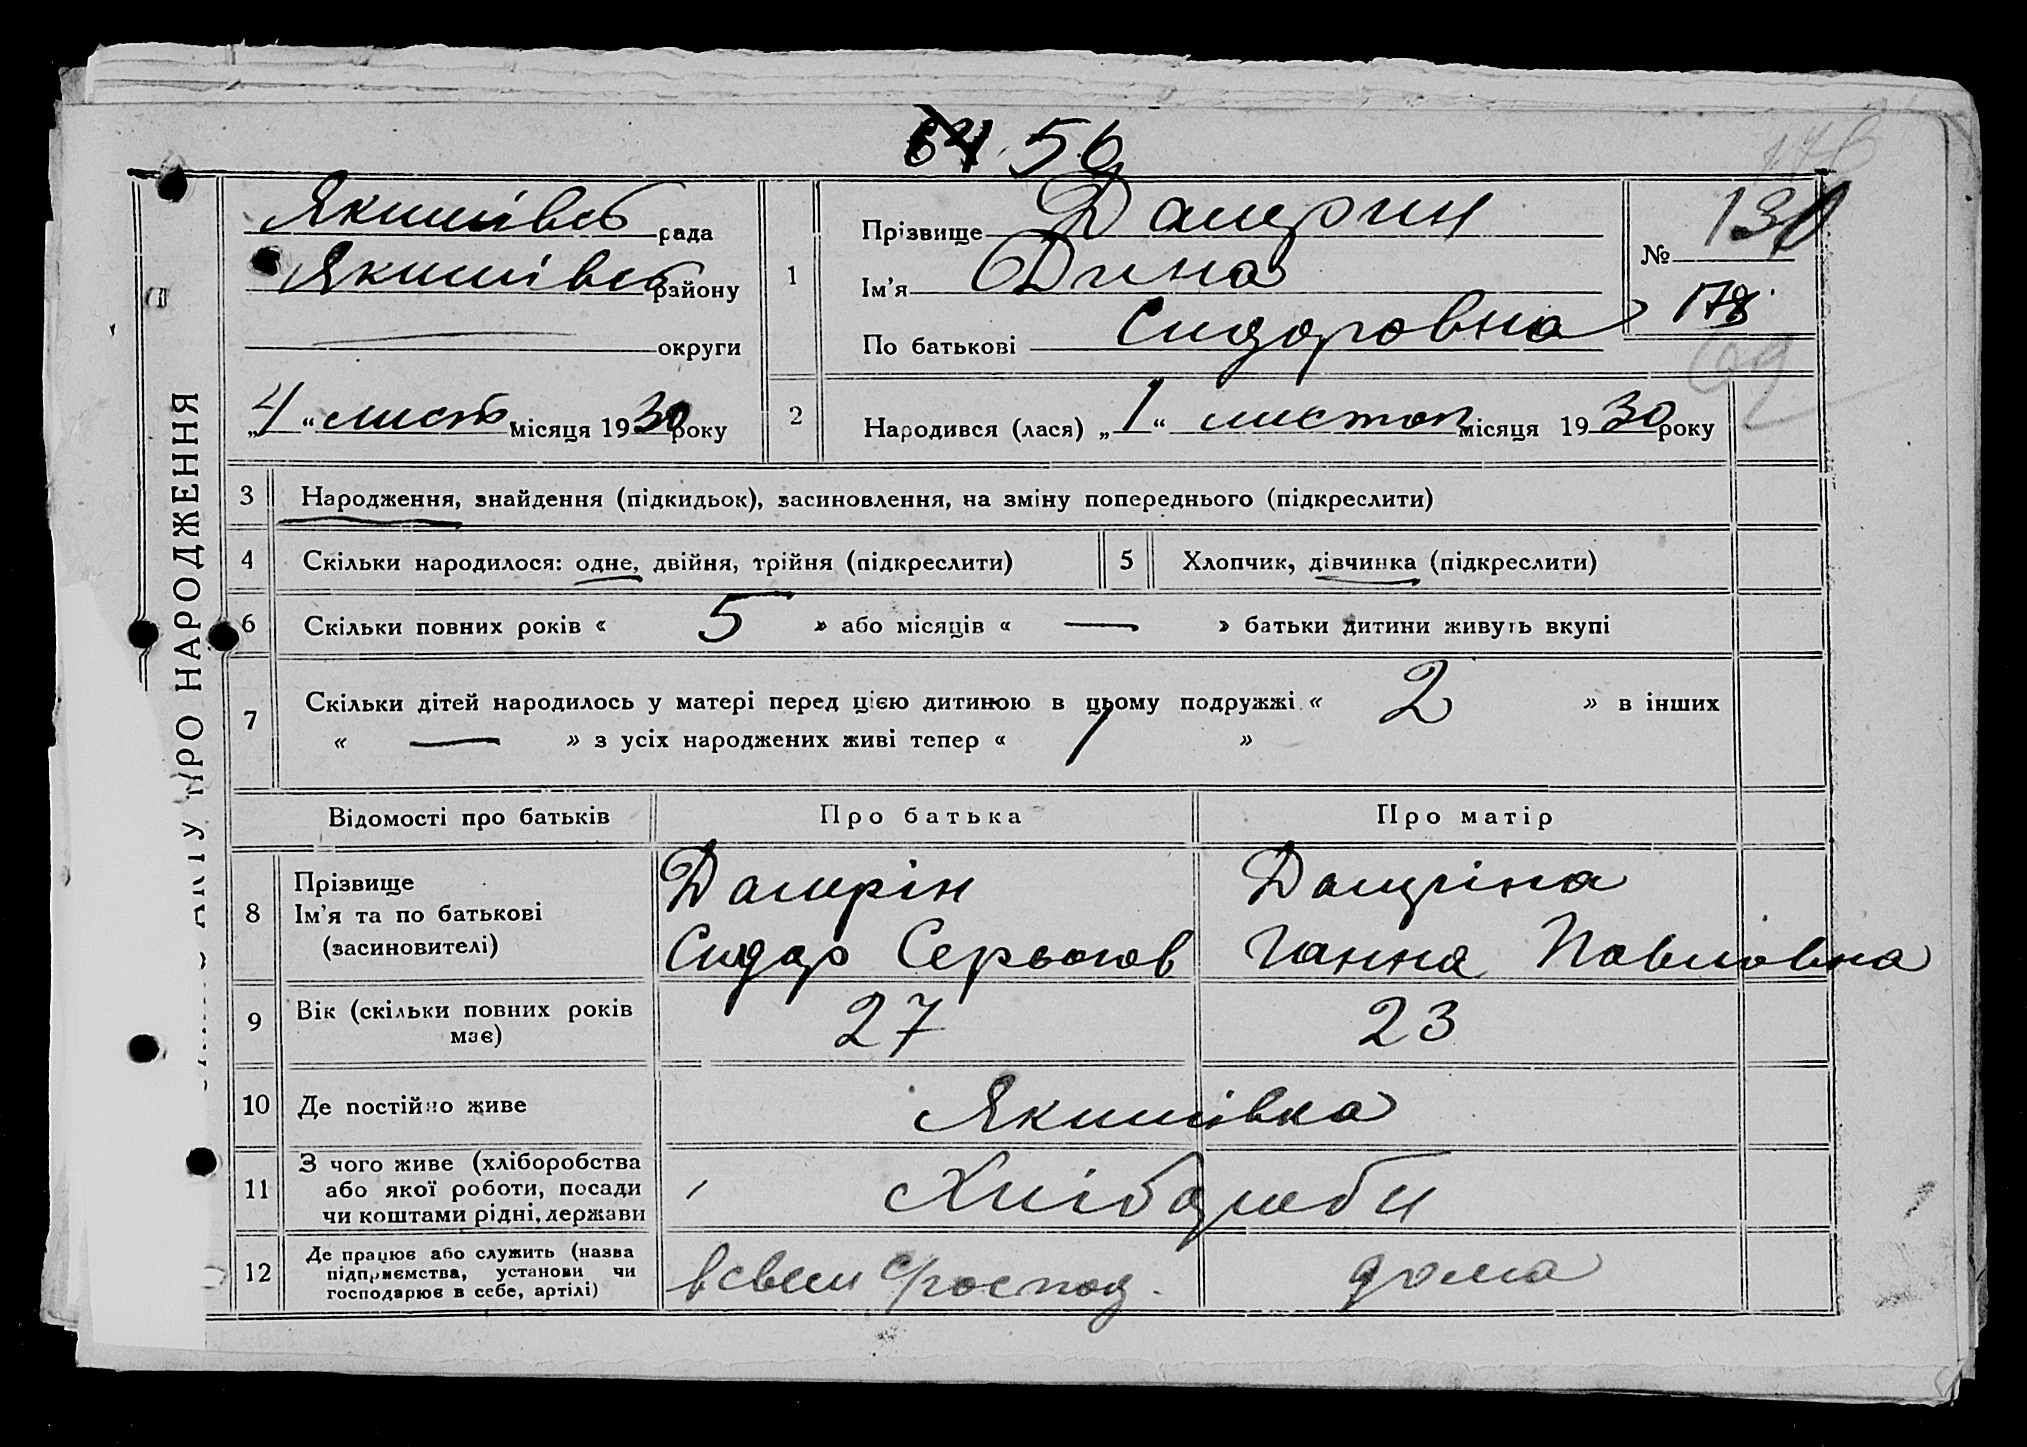 56
Якимівсь рада
Якимівсь району
округи
„4“ листо місяця 1930 року
1
Прізвище Дамрин
Ім’я Дина
По батькові Сидоровна
№ 130
178
69
2
Народився (лася) „1“ листоп місяця 1930 року
ПРО НАРОДЖЕННЯ
3 Народження, знайдення (підкидьок), засиновлення, на зміну попереднього (підкреслити)
4 Скільки народилося: одне, двійня, трійня (підкреслити) 5 Хлопчик, дівчинка (підкреслити)
6 Скільки повних років « 5 » або місяців « — » батьки дитини живуть вкупі
7 Скільки дітей народилось у матері перед цією дитиною в цьому подружжі « 2 » в інших
« — » з усіх народжених живі тепер « 1 »
Відомості про батьків Про батька Про матір
8 Прізвище
Ім’я та по батькові
(засиновителі)
Дамрін
Сидор Сергьєєв
Дамріна
Ганна Павловна
9 Вік (скільки повних років
має)
27 23
10 Де постійно живе Якимівка
11 З чого живе (хліборобства
або якої роботи, посади
чи коштами рідні, держави
Хлібороби
12 Де працює або служить (назва
підприємства, установи чи
господарює в себе, артілі)
в своем с/господ. дома